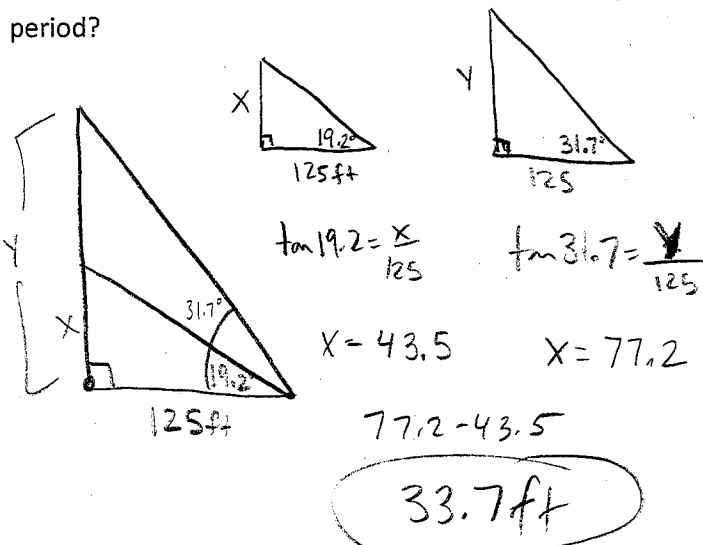 period?
X
19.2°
125ft
Y
31.7°
125
Y
X
31.7°
19.2°
125ft
tan 19.2 = x/125
X = 43.5
tan 31.7 = Y/125
X = 77.2
77.2 - 43.5
33.7ft